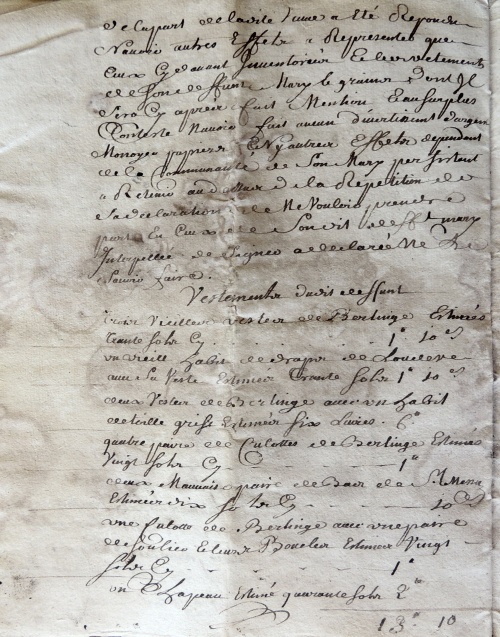 de la part de la dite dame a été Repondu
N'avoir autres Effets a Representer que
Ceux Cy devant Inventoriés Et les vetements
de son deffunt Mary le grains dont Il
Sera Cy apres fait Mention Et au surplus
Conteste N'avoir fait aucun divertissement d'argent
Monoyé papiers Et Ny autres Effets dependant
de la Communauté de Son Mary persistant
a Retenu au de la Repetition de
Sa declaration de Ne Vouloir prendre
part En Ceux de Son dit deffunt mary
Interpellée de Signer a declaré Ne Le
Savoir faire.
Vestements dudit deffunt
trois Vieilles vestes de Berlinge Estimés
trante Sols Cy 1# 10 s
un vieille habit de drap de couleur
avec Sa Veste Estimés trante Sols 1# 10 s
deux Vestes de Berlinge avec un habit
de toille grise Estimés Six Livres. 6#
quatre paire de Culottes de Berlinge Estimé
Vingt Sols Cy 1#
deux Mauvais paire de Bas de
Estimés dix Sols Cy 10 s
une Culotte de Berlinge avec une paire
de Souliers Et leurs Boucles Estimés Vingt
Sols Cy 1#
un Chapeau Estimé quarante Sols 2#
13# 10